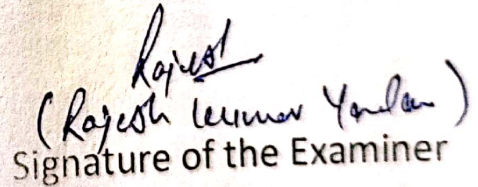 Rajesh
(Rajesh Kumar Yadav)
Signature of the Examiner